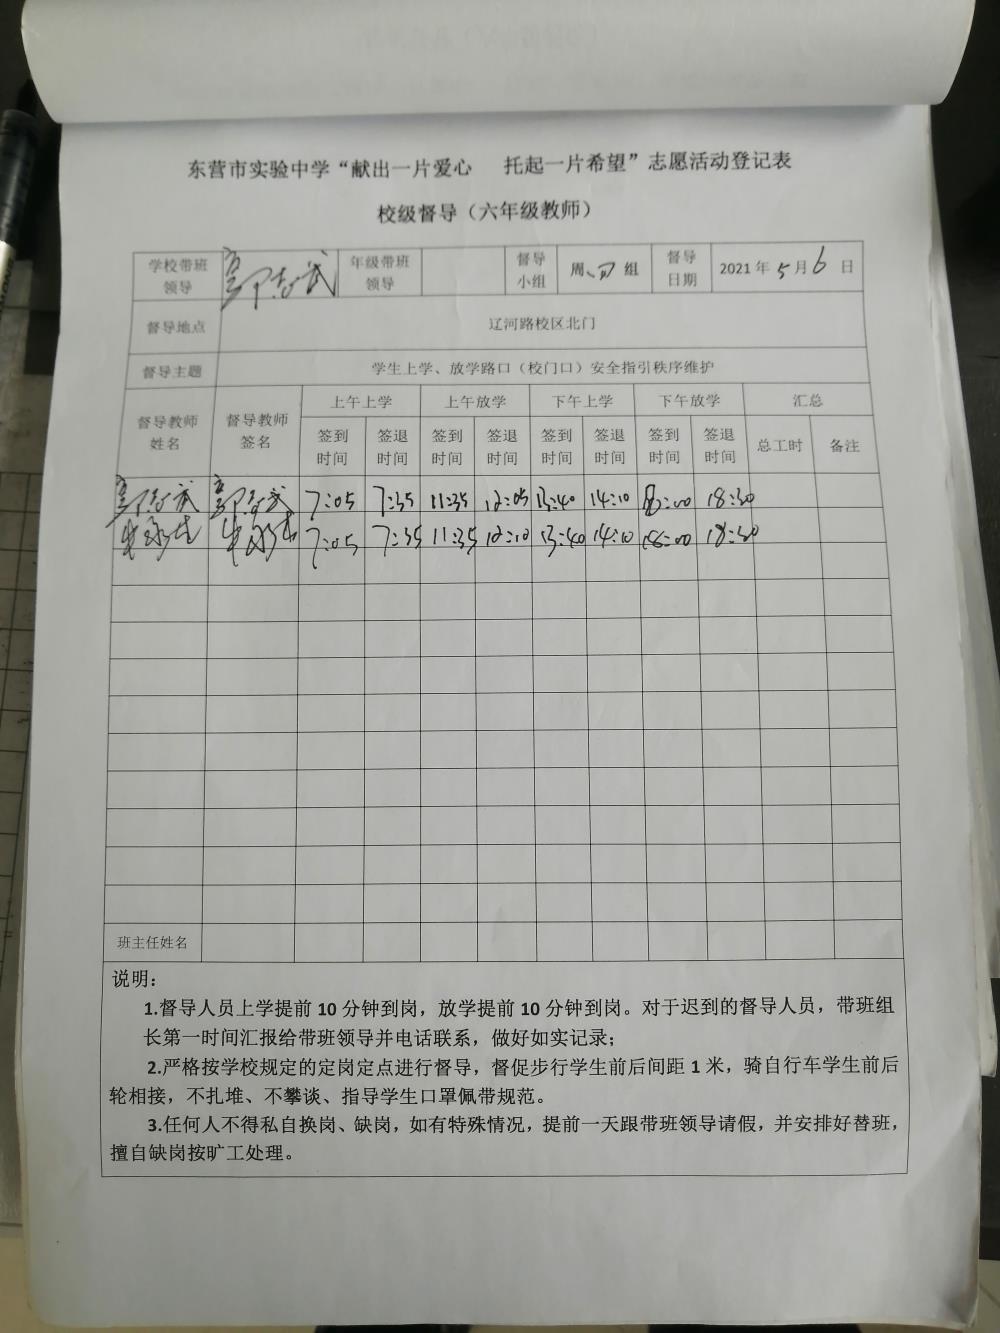 东营市实验中学“献出一片爱心 托起一片希望”志愿活动登记表
校级督导（六年级教师）
学校带班领导 郭志武 年级带班领导 督导小组 周四组 督导日期 2021年5月6日
督导地点 辽河路校区北门
督导主题 学生上学、放学路口（校门口）安全指引秩序维护
督导教师姓名 督导教师签名 上午上学 上午放学 下午上学 下午放学 汇总
签到时间 签退时间 签到时间 签退时间 签到时间 签退时间 签到时间 签退时间 总工时 备注
郭志武 郭志武 7:05 7:35 11:35 12:05 13:40 14:10 18:00 18:30
7:05 7:35 11:35 12:10 13:40 14:10 18:00 18:30
班主任姓名
说明：
1.督导人员上学提前10分钟到岗，放学提前10分钟到岗。对于迟到的督导人员，带班组
长第一时间汇报给带班领导并电话联系，做好如实记录；
2.严格按学校规定的定岗定点进行督导，督促步行学生前后间距1米，骑自行车学生前后
轮相接，不扎堆、不攀谈、指导学生口罩佩带规范。
3.任何人不得私自换岗、缺岗，如有特殊情况，提前一天跟带班领导请假，并安排好替班，
擅自缺岗按旷工处理。